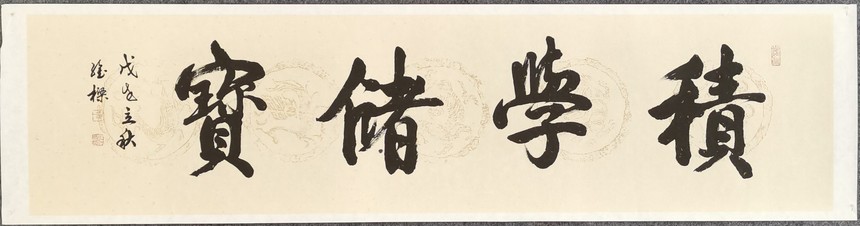 積學儲寶
戊戌立秋